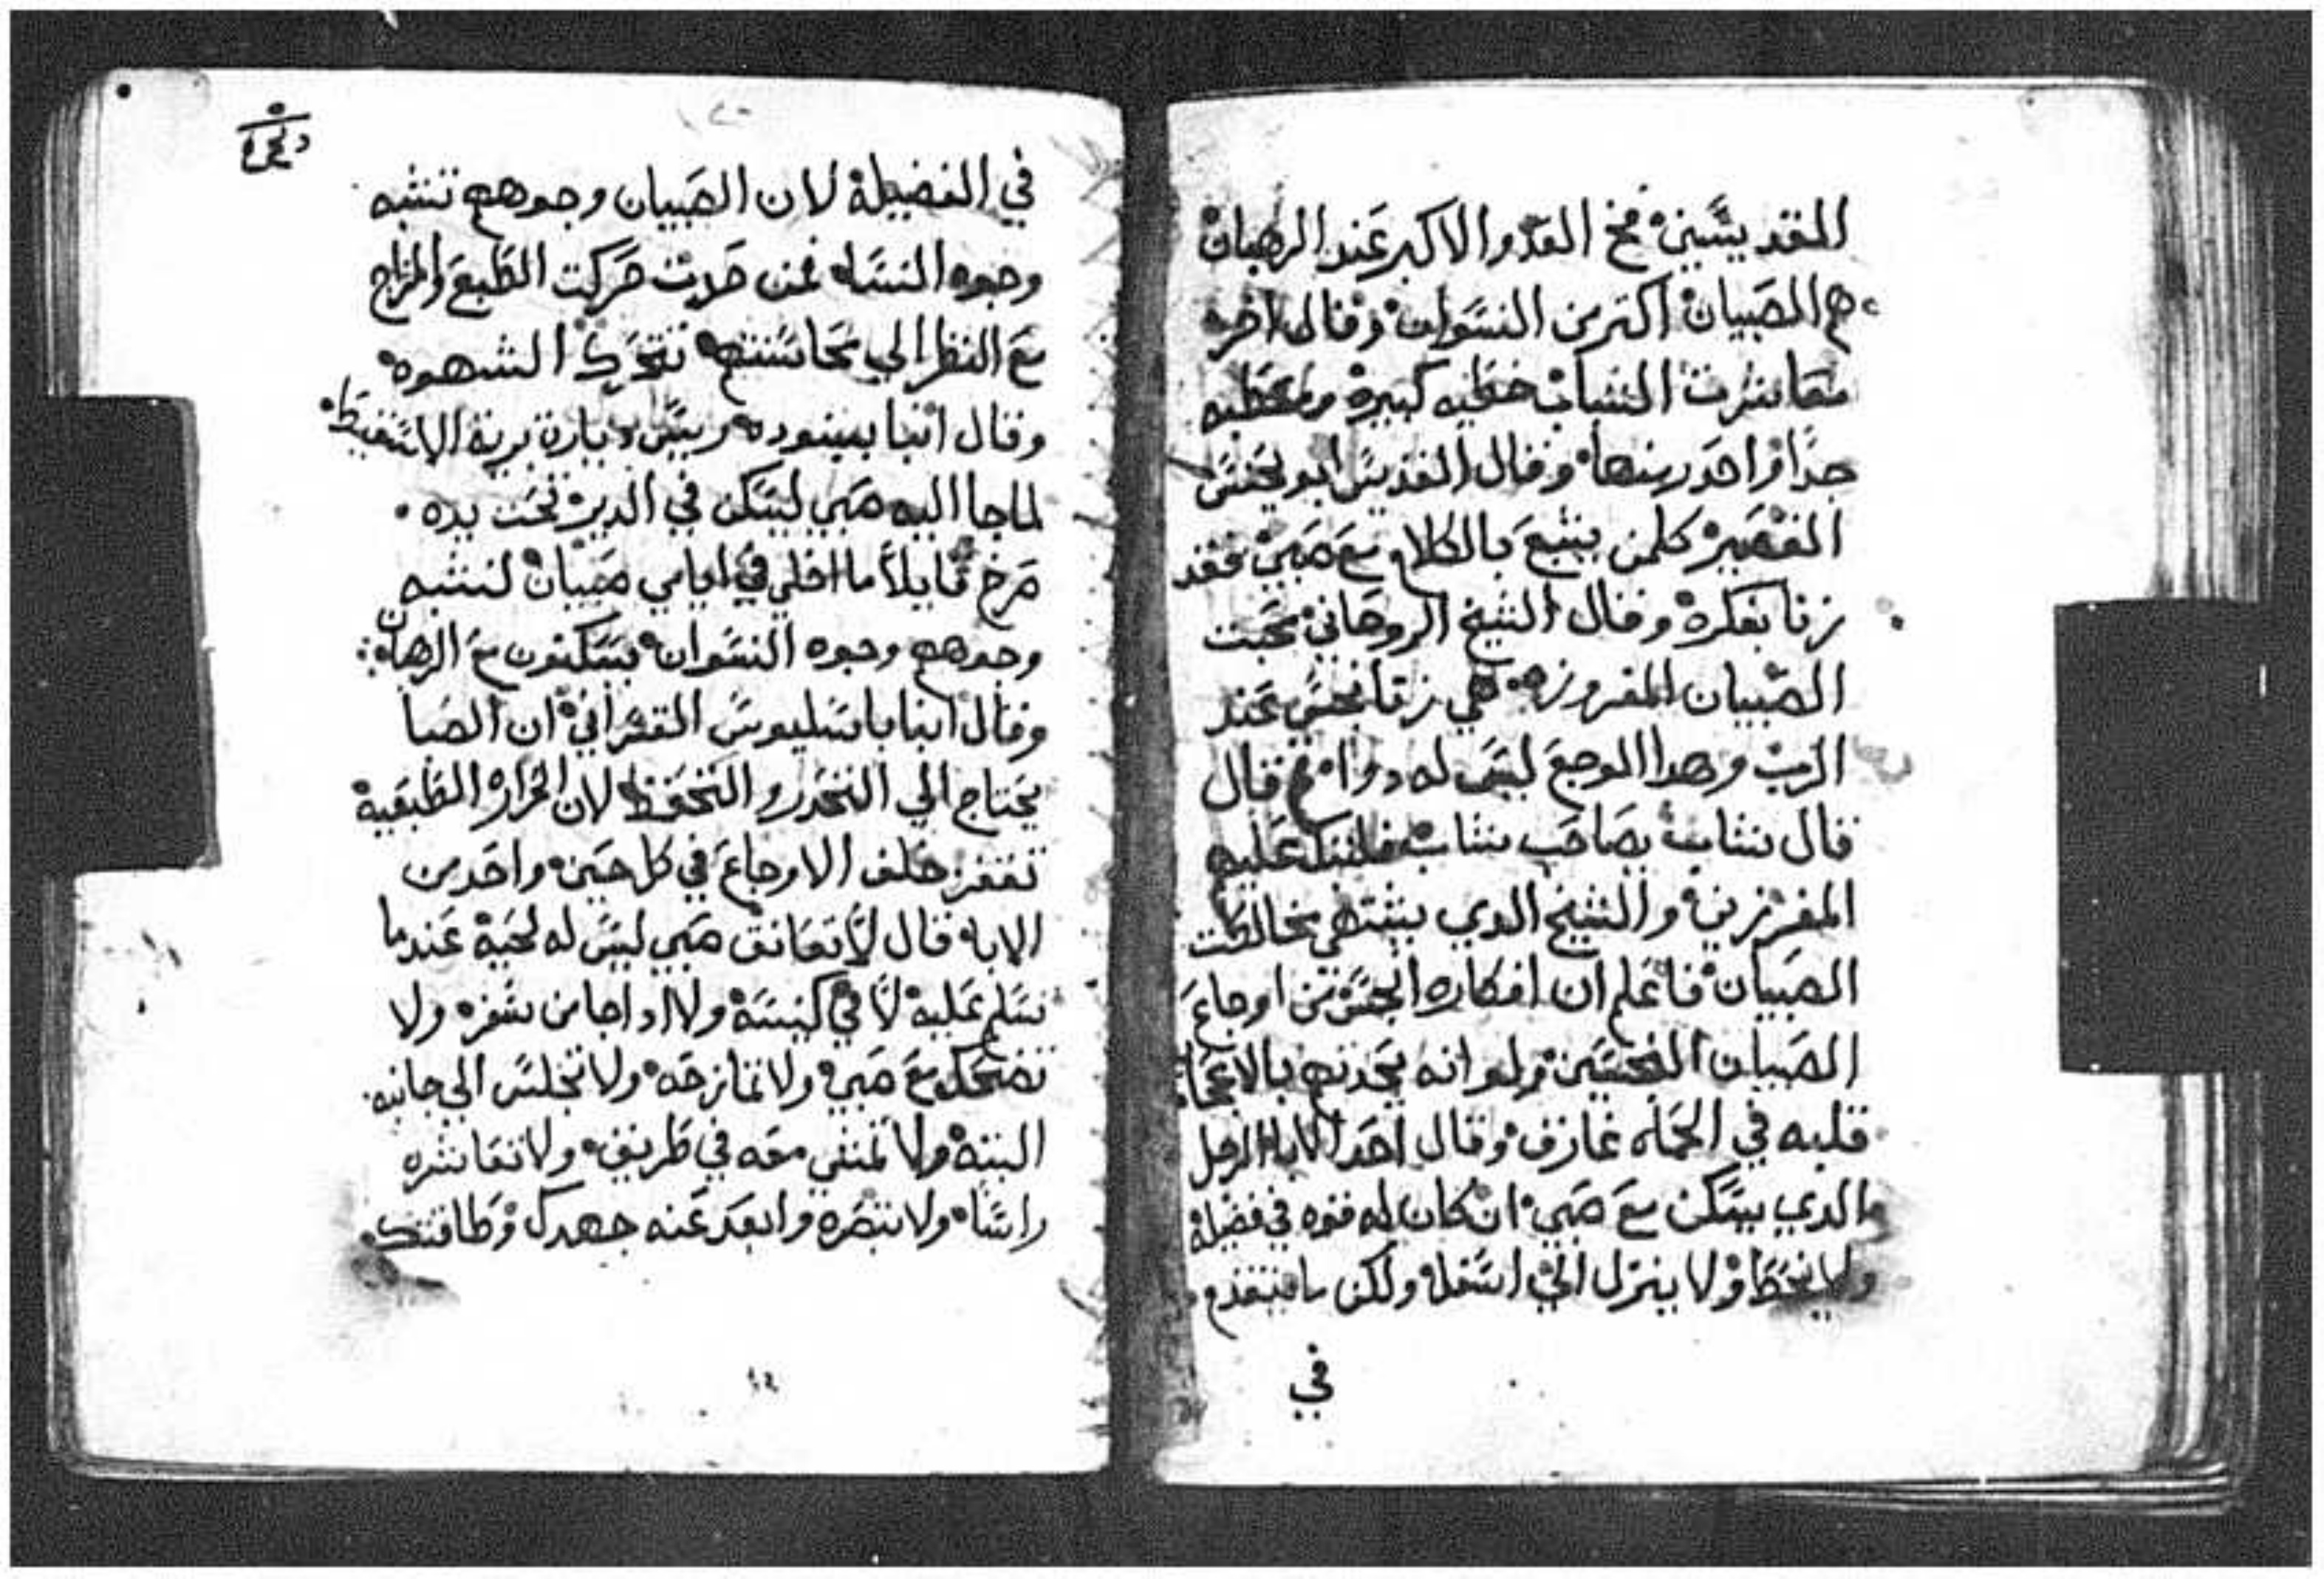 المقديسين فخ العدو الاكبر عند الرهبان
هم الصبيان اكتر من النسوان وقال اخر
معاشرت الشباب خطيه كبيره
جدًا واحدر منها وقال القديس ابو يحنس
القصير كلمن يشبع بالكلام مع صبي فقد
زنا بفكره وقال الشيخ الروحاني محبت
الصبيان المفروزه هي زنا نجس عند
الرب وهدا الوجع ليس له دوا
قال شاب يصاحب شاب عليهم
المفرزين والشيخ الدي يشتهي مخالطت
الصبيان فاعلم ان افكاره انجس من اوجاع
الصبيان النجسين ولو انه يحدتهم بالاعجاب
قلبه في الحماه غارق وقال احد الابا الرجل
الدي يسكن مع صبي ان كان له قوه في فضيله
ولا ينزل الي اسفله ولكن ما يتقدم
في
في الفضيله لان الصبيان وجوههم تشبه
وجوه النسا فمن حدت حركت الطبع والمزاج
مع النظر الي محاسنهم تتحرك الشهوه
وقال انبا بيشوده ريس ديارة برية الاسقيط
لما جا اليه صبي ليسكن في الدير تحت يده
صرخ قايلاً ما اخلي في ايامي صبيان تشبه
وجوههم وجوه النسوان يسكنون مع الرهبان
وقال انبا باسليوس القيسراني ان الصبا
يحتاج الي التحدر والتحفظ لان الحراره الطبعيه
تقفز خلف الاوجاع في كل حين واحد من
الابا قال لا تعانق صبي ليس له لحيه عندما
تسلم عليه لا في كنيسه ولا ادا جا من سفر ولا
تضحك مع صبي ولا تمازحه ولا تجلس الي جانبه
البته ولا تمشي معه في طريق ولا تعاشره
راسًا ولا تبصره وابعد عنه جهدك وطاقتك